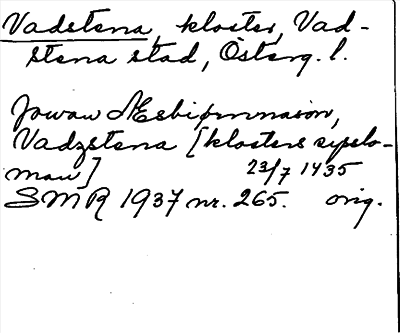 Vadstena, kloster, Vad-
stena stad, Österg. l.
Jowan Æsbiørnnason,
Vadzstena [klosters sysslo-
man]
23/7 1435
SMR 1937 nr. 265. orig.